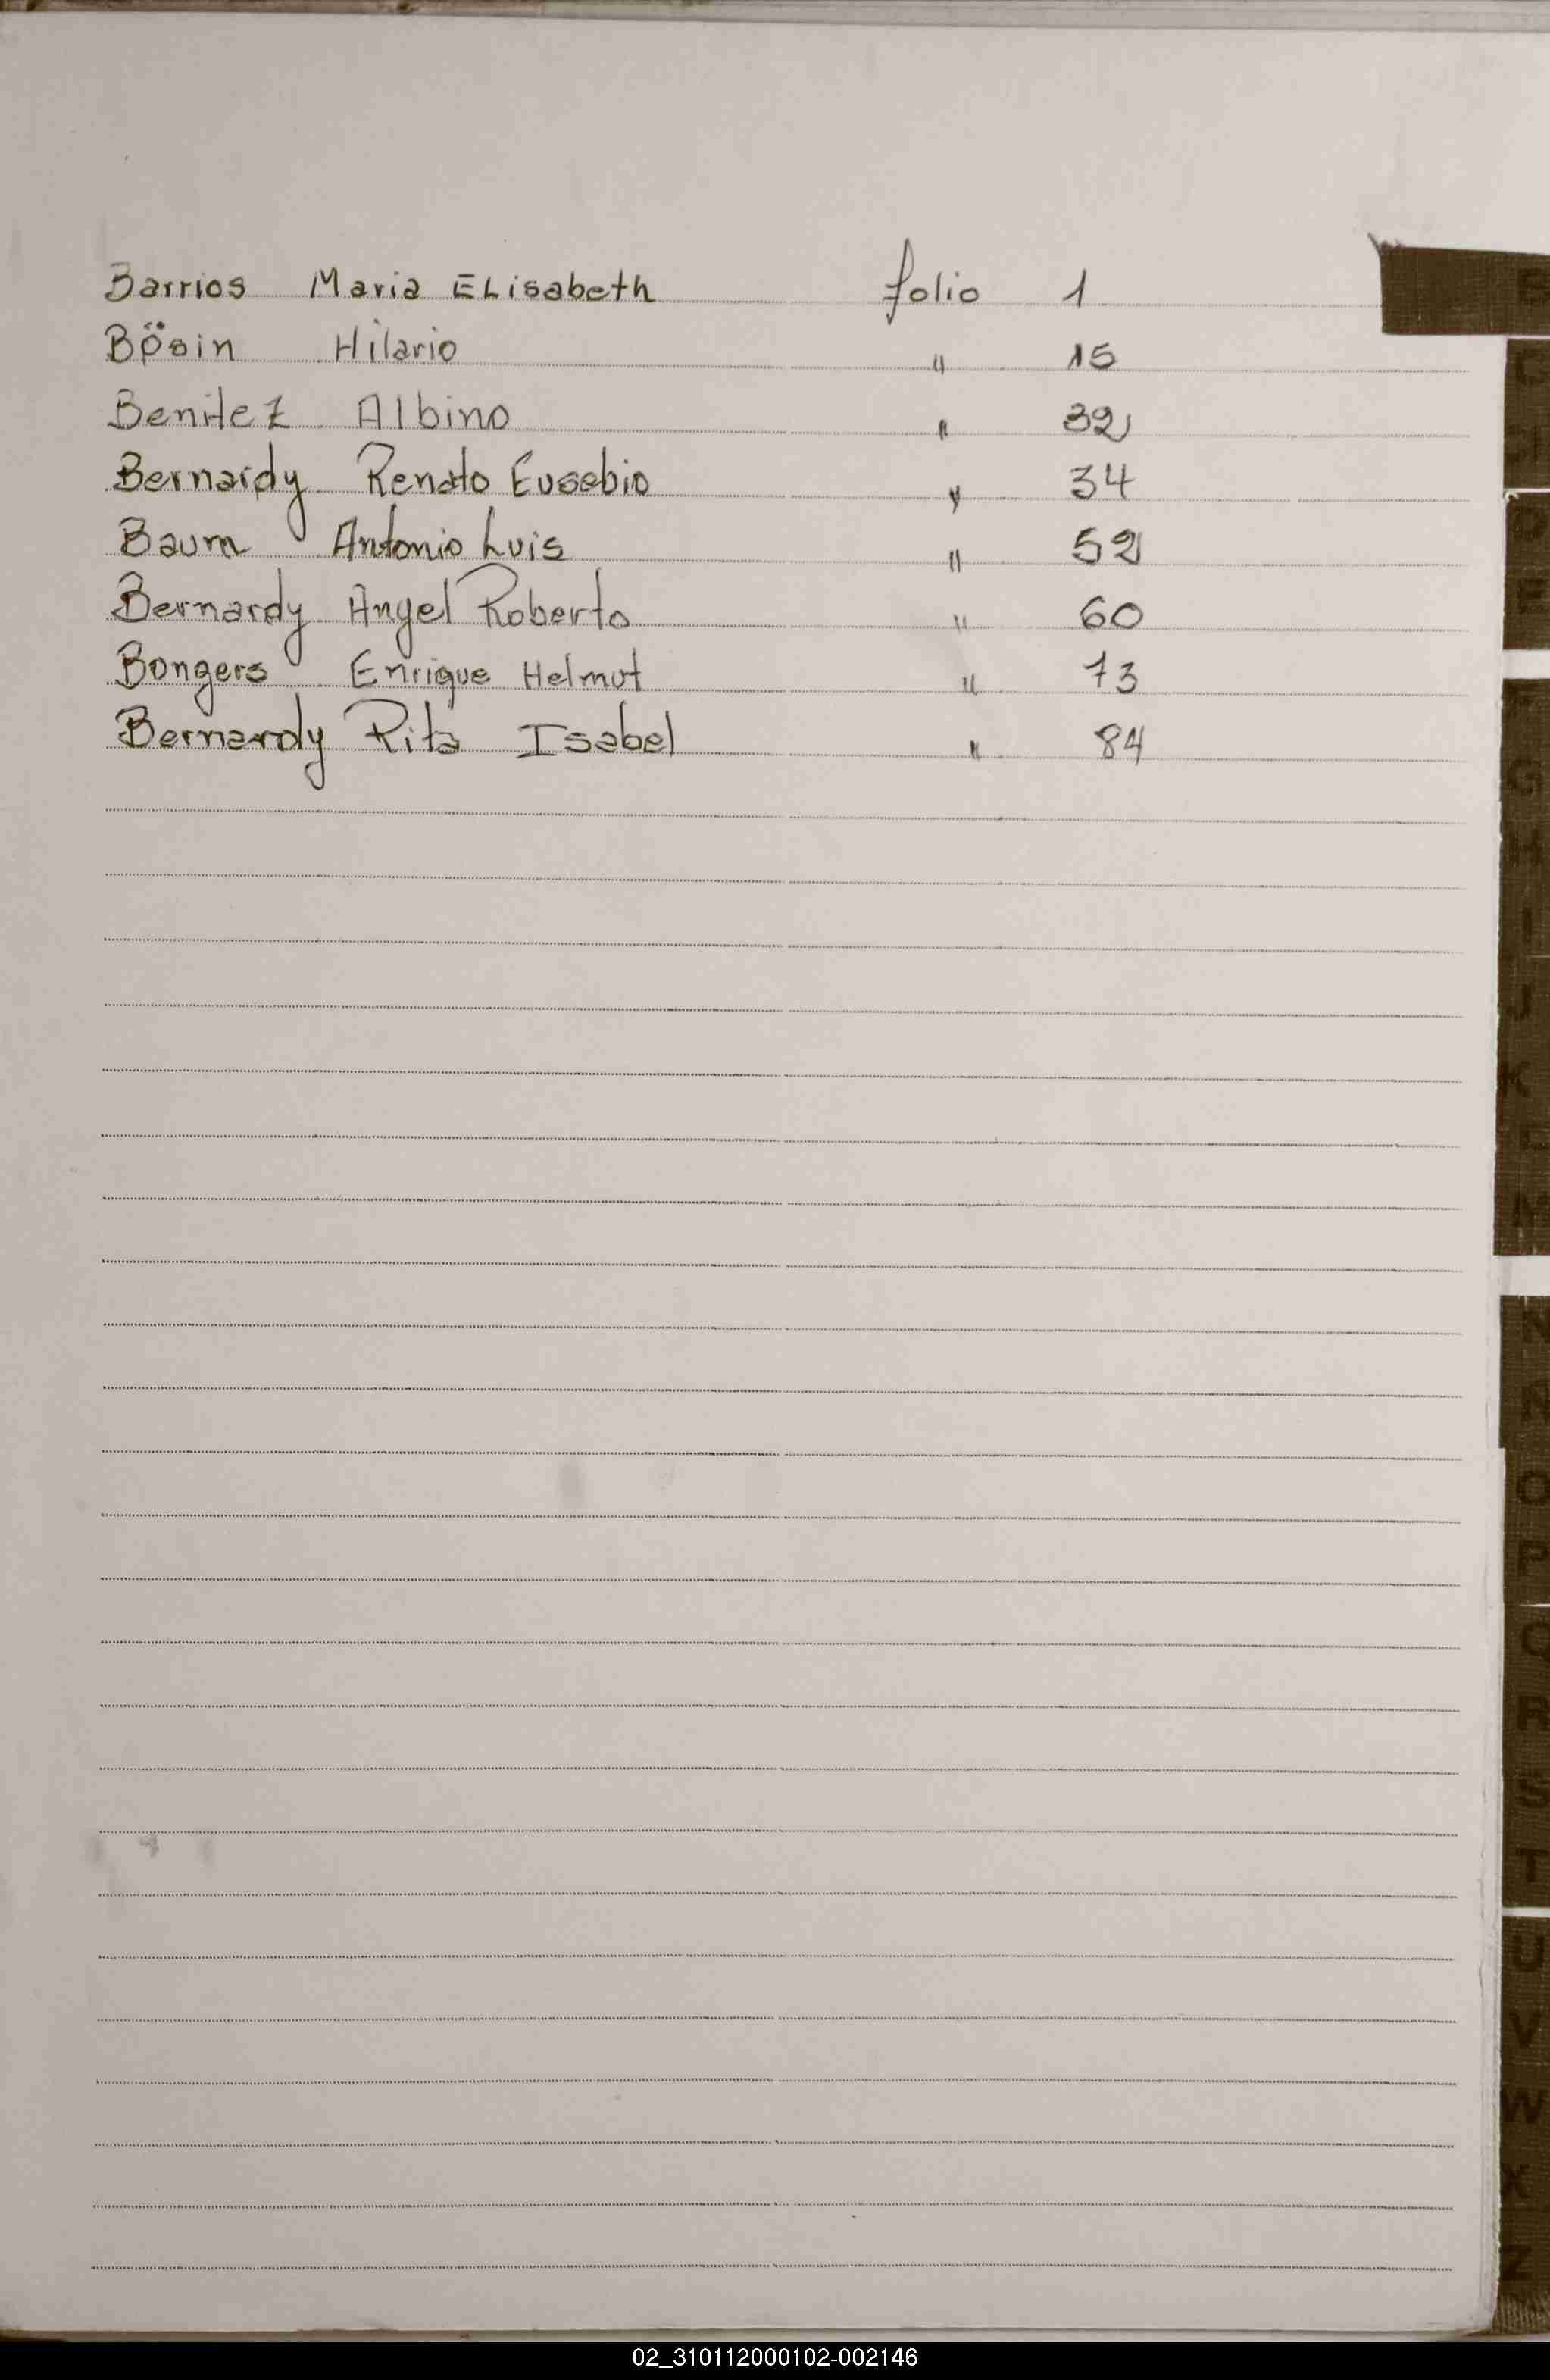 Barrios Maria ELisabeth folio 1
Bösin Hilario " 15
Benitez Albino " 32
Bernardy Renato Eusebio " 34
Baum Antonio Luis " 52
Bernardy Angel Roberto " 60
Bongers Enrique Helmut " 73
Bernardy Rita Isabel " 84
G
H
I
J
K
N
O
P
Q
R
S
T
U
V
W
X
Z
02_310112000102-002146